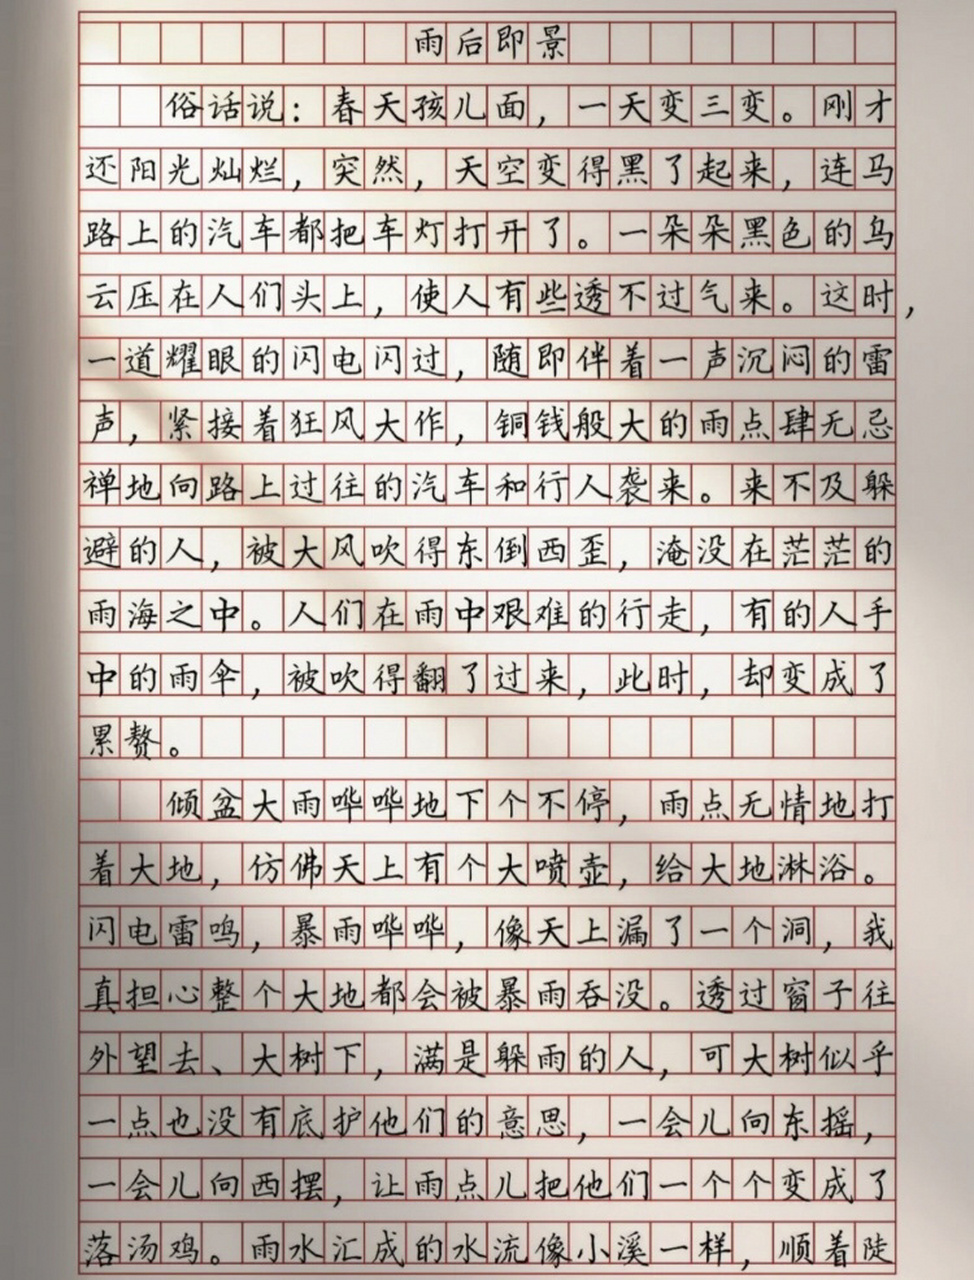 雨后即景
俗话说：春天孩儿面，一天变三变。刚才
还阳光灿烂，突然，天空变得黑了起来，连马
路上的汽车都把车灯打开了。一朵朵黑色的乌
云压在人们头上，使人有些透不过气来。这时，
一道耀眼的闪电闪过，随即伴着一声沉闷的雷
声，紧接着狂风大作，铜钱般大的雨点肆无忌
禅地向路上过往的汽车和行人袭来。来不及躲
避的人，被大风吹得东倒西歪，淹没在茫茫的
雨海之中。人们在雨中艰难的行走，有的人手
中的雨伞，被吹得翻了过来，此时，却变成了
累赘。
倾盆大雨哗哗地下个不停，雨点无情地打
着大地，仿佛天上有个大喷壶，给大地淋浴。
闪电雷鸣，暴雨哗哗，像天上漏了一个洞，我
真担心整个大地都会被暴雨吞没。透过窗子往
外望去、大树下，满是躲雨的人，可大树似乎
一点也没有底护他们的意思，一会儿向东摇，
一会儿向西摆，让雨点儿把他们一个个变成了
落汤鸡。雨水汇成的水流像小溪一样，顺着陡